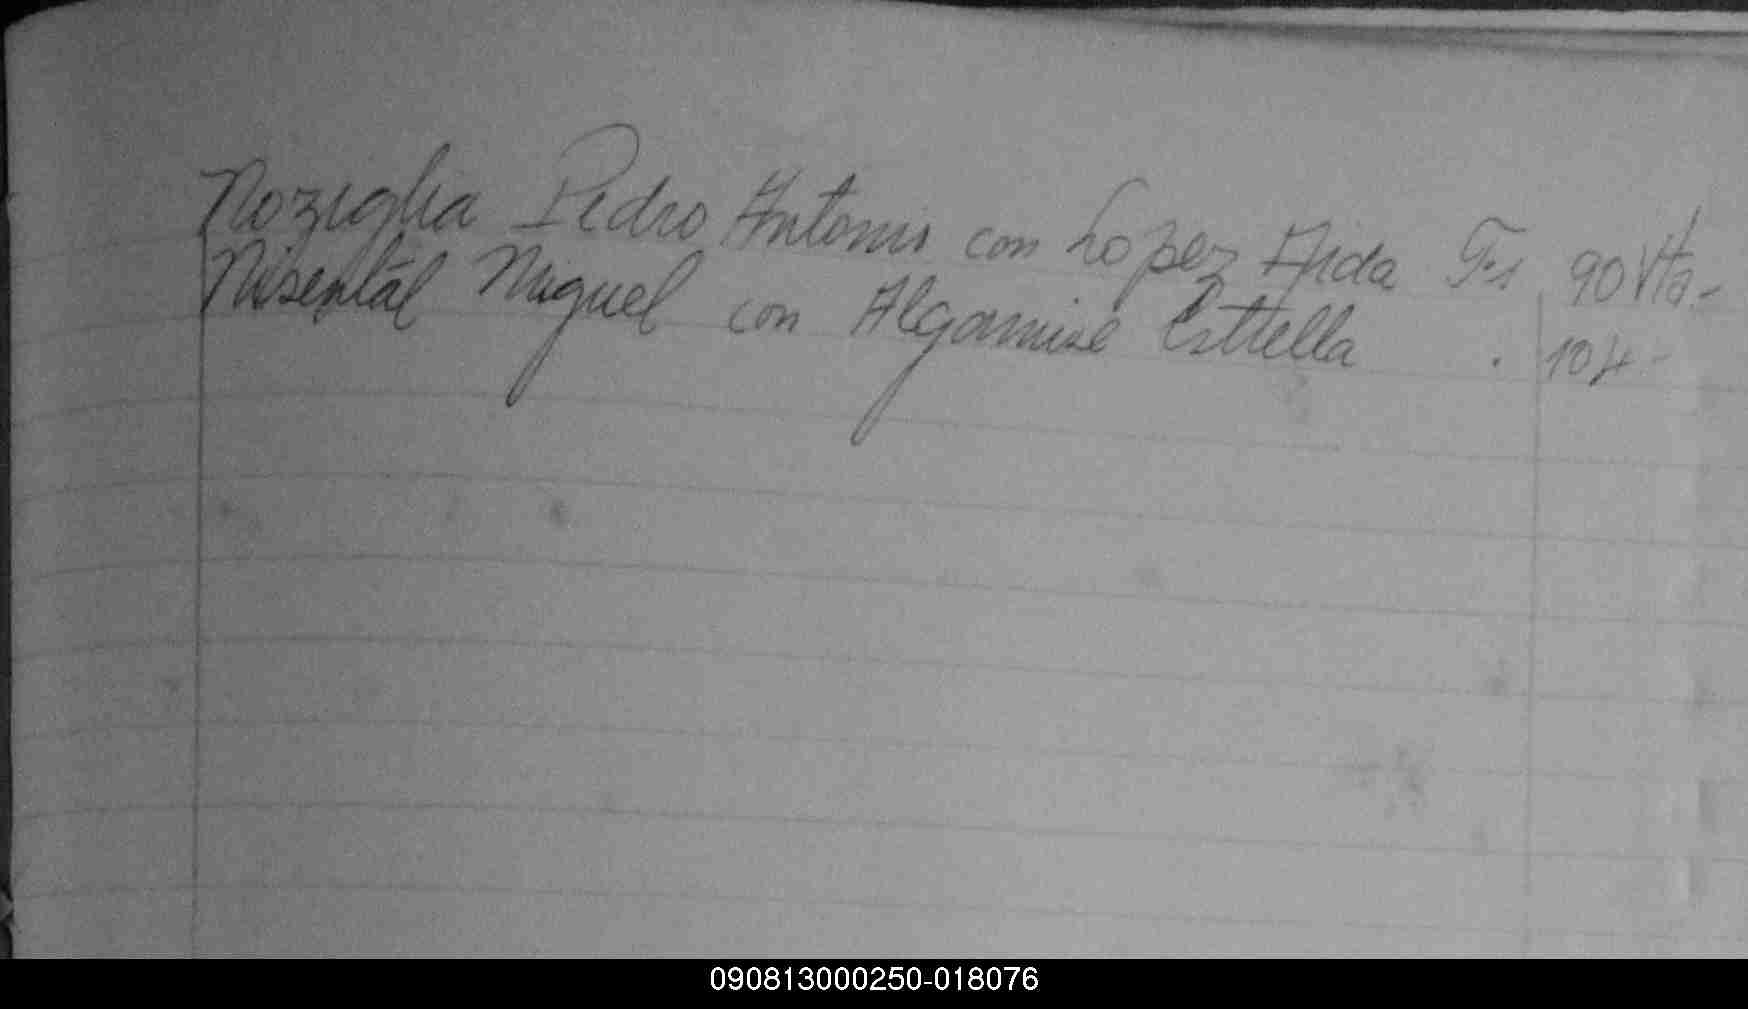 Noziglia Pedro Antonio con Lopez Aida Fs 90 Vta-
Nisental Miguel con Algamise Estrella . 104-
090813000250-018076